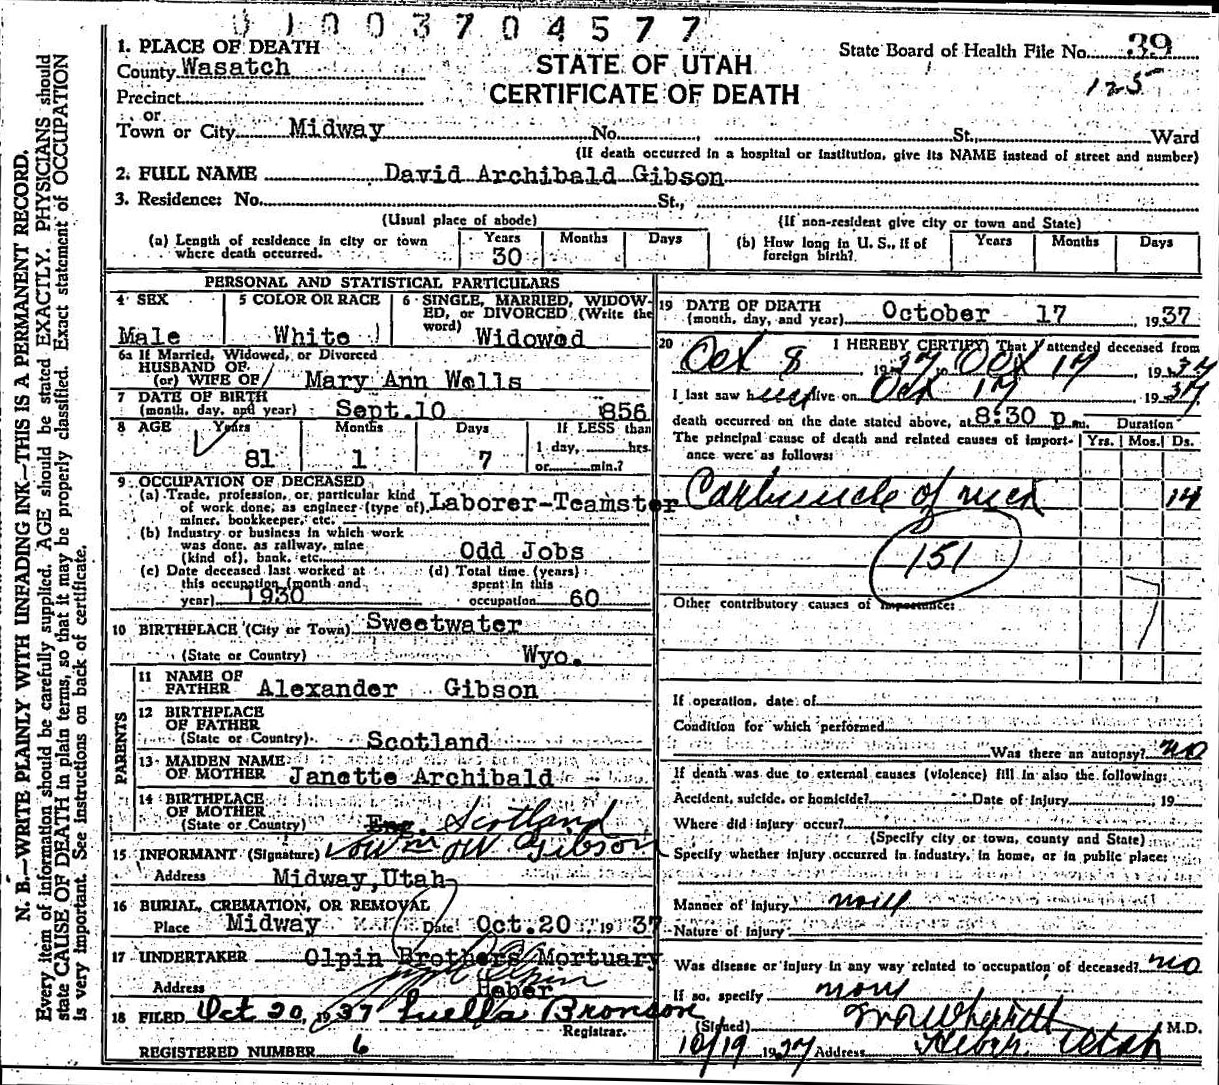 0100370 4577
1. PLACE OF DEATH
County Wasatch
Precinct
or
Town or City Midway No. St., Ward
STATE OF UTAH
CERTIFICATE OF DEATH
State Board of Health File No. 39
125
(If death occurred in a hospital or institution, give its NAME instead of street and number)
2. FULL NAME David Archibald Gibson
3. Residence: No. St.,
(Usual place of abode) (If non-resident give city or town and State)
(a) Length of residence in city or town where death occurred. Years 30 Months Days
(b) How long in U. S., if of foreign birth? Years Months Days
PERSONAL AND STATISTICAL PARTICULARS
4 SEX Male
5 COLOR OR RACE White
6 SINGLE, MARRIED, WIDOWED, or DIVORCED (Write the word) Widowed
6a If Married, Widowed, or Divorced
HUSBAND OF
(or) WIFE OF Mary Ann Wells
7 DATE OF BIRTH
(month, day, and year) Sept. 10 856
8 AGE Years 81 Months 1 Days 7 If LESS than 1 day, hrs. or min.?
9 OCCUPATION OF DECEASED
(a) Trade, profession, or particular kind of work done, as engineer (type of), miner, bookkeeper, etc. Laborer-Teamster
(b) Industry or business in which work was done, as railway, mine (kind of), bank, etc. Odd Jobs
(c) Date deceased last worked at this occupation (month and year) 1930
(d) Total time (years) spent in this occupation 60
10 BIRTHPLACE (City or Town) Sweetwater
(State or Country) Wyo.
PARENTS
11 NAME OF FATHER Alexander Gibson
12 BIRTHPLACE OF FATHER
(State or Country) Scotland
13 MAIDEN NAME OF MOTHER Janette Archibald
14 BIRTHPLACE OF MOTHER
(State or Country) Eng. Scotland
15 INFORMANT (Signature) Wm W Gibson
Address Midway, Utah
16 BURIAL, CREMATION, OR REMOVAL
Place Midway Date Oct. 20 19 37
17 UNDERTAKER Olpin Brothers Mortuary
Address Heber
18 FILED Oct 20, 1937 Luella Bronson
Registrar.
REGISTERED NUMBER 6
19 DATE OF DEATH
(month, day, and year) October 17, 1937
20 I HEREBY CERTIFY, That I attended deceased from
Oct 8, 1937, to Oct 17, 1937
I last saw him alive on Oct 17 1937
death occurred on the date stated above, at 8:30 p m. Duration
The principal cause of death and related causes of importance were as follows: Yrs. Mos. Ds.
Carbuncle of neck 14
151
Other contributory causes of importance:
If operation, date of
Condition for which performed
Was there an autopsy? no
If death was due to external causes (violence) fill in also the following:
Accident, suicide, or homicide? Date of injury, 19
Where did injury occur?
(Specify city or town, county and State)
Specify whether injury occurred in industry, in home, or in public place:
Manner of injury
Nature of injury
Was disease or injury in any way related to occupation of deceased? no
If so, specify
(Signed) M.D.
10/19 1937 Address Heber, Utah
N. B.—WRITE PLAINLY WITH UNFADING INK—THIS IS A PERMANENT RECORD.
Every item of information should be carefully supplied. AGE should be stated EXACTLY. PHYSICIANS should
state CAUSE OF DEATH in plain terms, so that it may be properly classified. Exact statement of OCCUPATION
is very important. See instructions on back of certificate.